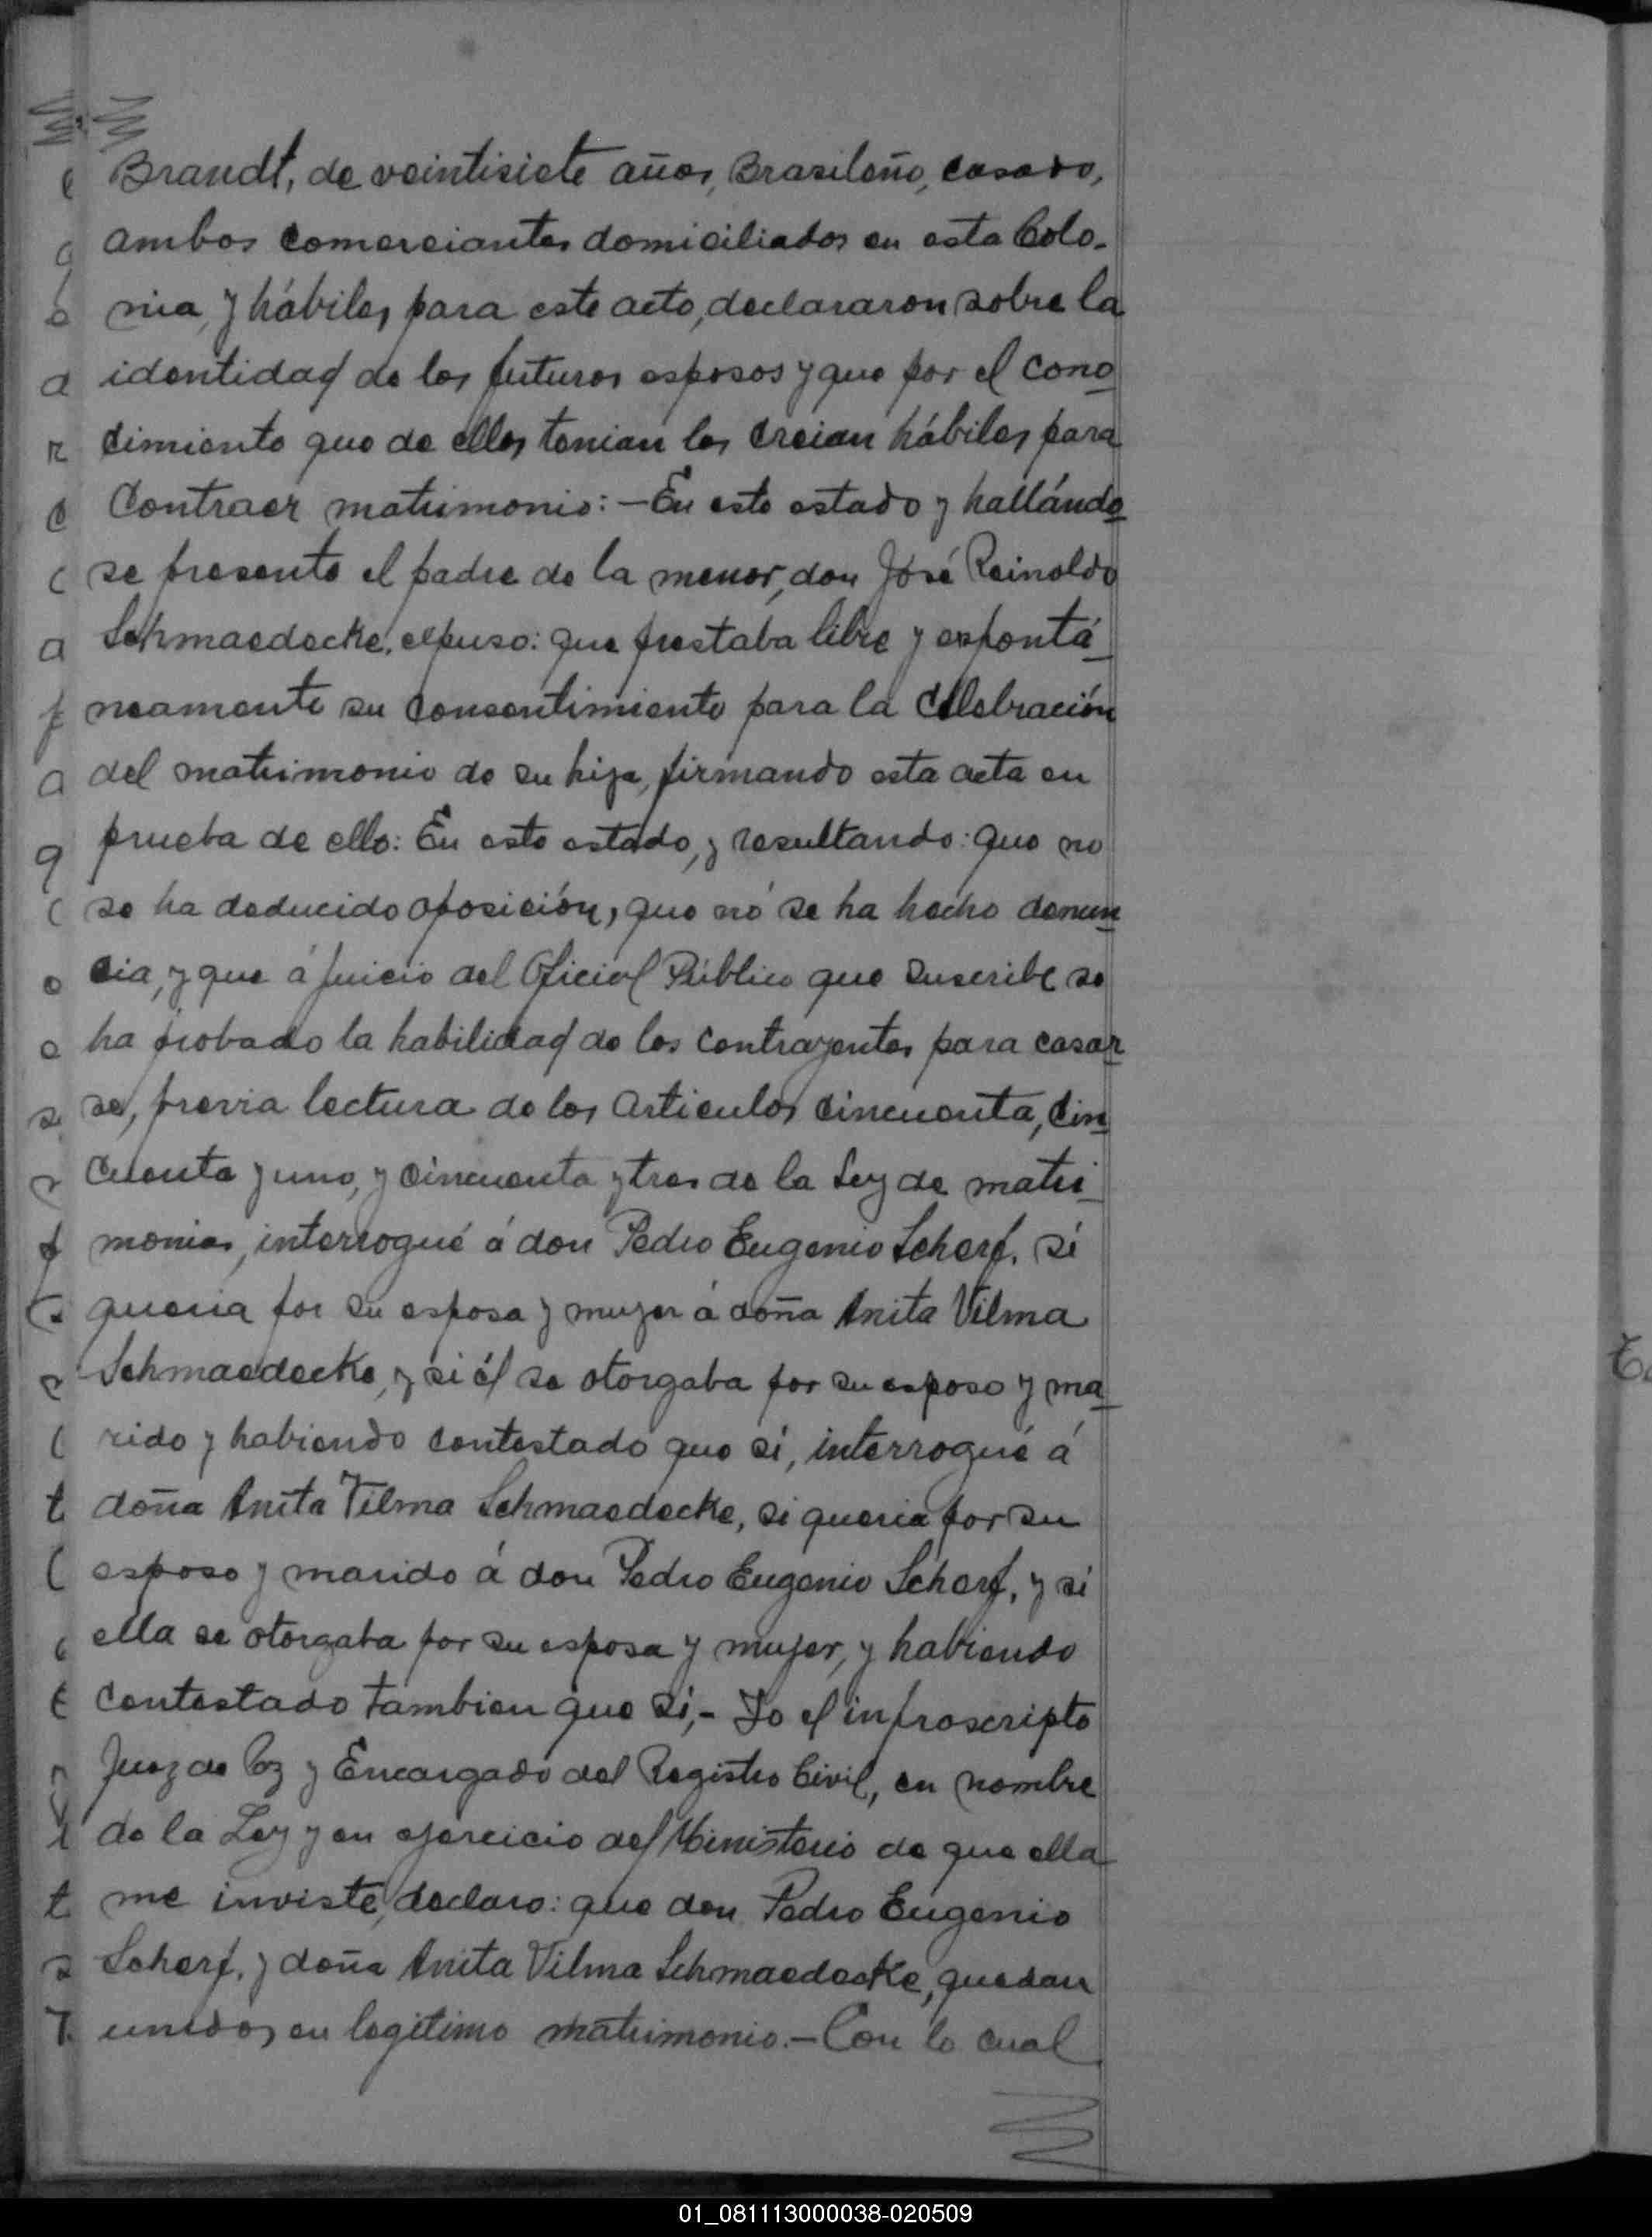 Brandt, de veintisiete años, Brasileño, casado,
ambos comerciantes domiciliados en esta Colo-
nia, y hábiles para este acto, declararon sobre la
identidad de los futuros esposos y que por el cono
cimiento que de ellos tenian los creian hábiles para
contraer matrimonio:—En este estado y hallándo
se presente el padre de la menor, don José Reinoldo
Schmaedecke, expuso: que prestaba libre y espontá-
neamente su consentimiento para la celebración
del matrimonio de su hija, firmando esta acta en
prueba de ello: En este estado, y resultando: que no
se ha deducido oposición, que nó se ha hecho denun
cia, y que á juicio del Oficial Público que suscribe se
ha probado la habilidad de los contrayentes para casar
se, previa lectura de los articulos cincuenta, cin
cuenta y uno, y cincuenta y tres de la Ley de matri-
monios, interrogué á don Pedro Eugenio Scherf, si
queria por su esposa y mujer á doña Anita Vilma
Schmaedecke, y si él se otorgaba por su esposo y ma-
rido y habiendo contestado que sí, interrogué á
doña Anita Vilma Schmaedecke, si queria por su
esposo y marido á don Pedro Eugenio Scherf, y si
ella se otorgaba por su esposa y mujer, y habiendo
contestado tambien que sí,- Yo el infrascripto
Juez de Paz y Encargado del Registro Civil, en nombre
de la Ley y en ejercicio del Ministerio de que ella
me inviste, declaro: que don Pedro Eugenio
Scherf, y doña Anita Vilma Schmaedecke, quedan
unidos en legitimo matrimonio.—Con lo cual
01_081113000038-020509